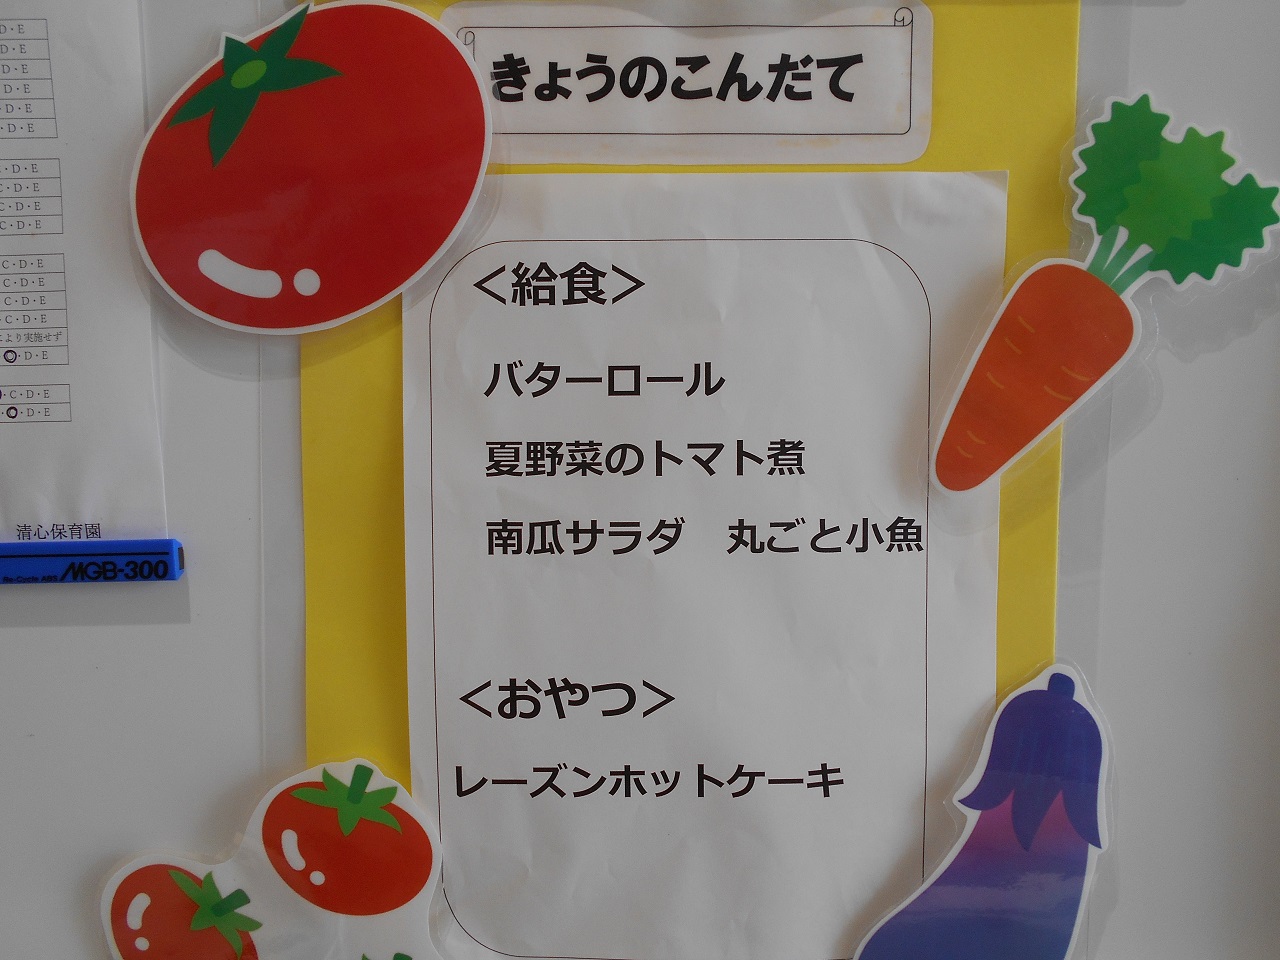 きょうのこんだて
＜給食＞
バターロール
夏野菜のトマト煮
南瓜サラダ　丸ごと小魚
＜おやつ＞
レーズンホットケーキ
D・E
D・E
D・E
D・E
D・E
D・E
C・D・E
C・D・E
C・D・E
C・D・E
C・D・E
C・D・E
C・D・E
・C・D・E
により実施せず
・D・E
・C・D・E
・D・E
清心保育園
Re-Cycle ABS MGB-300